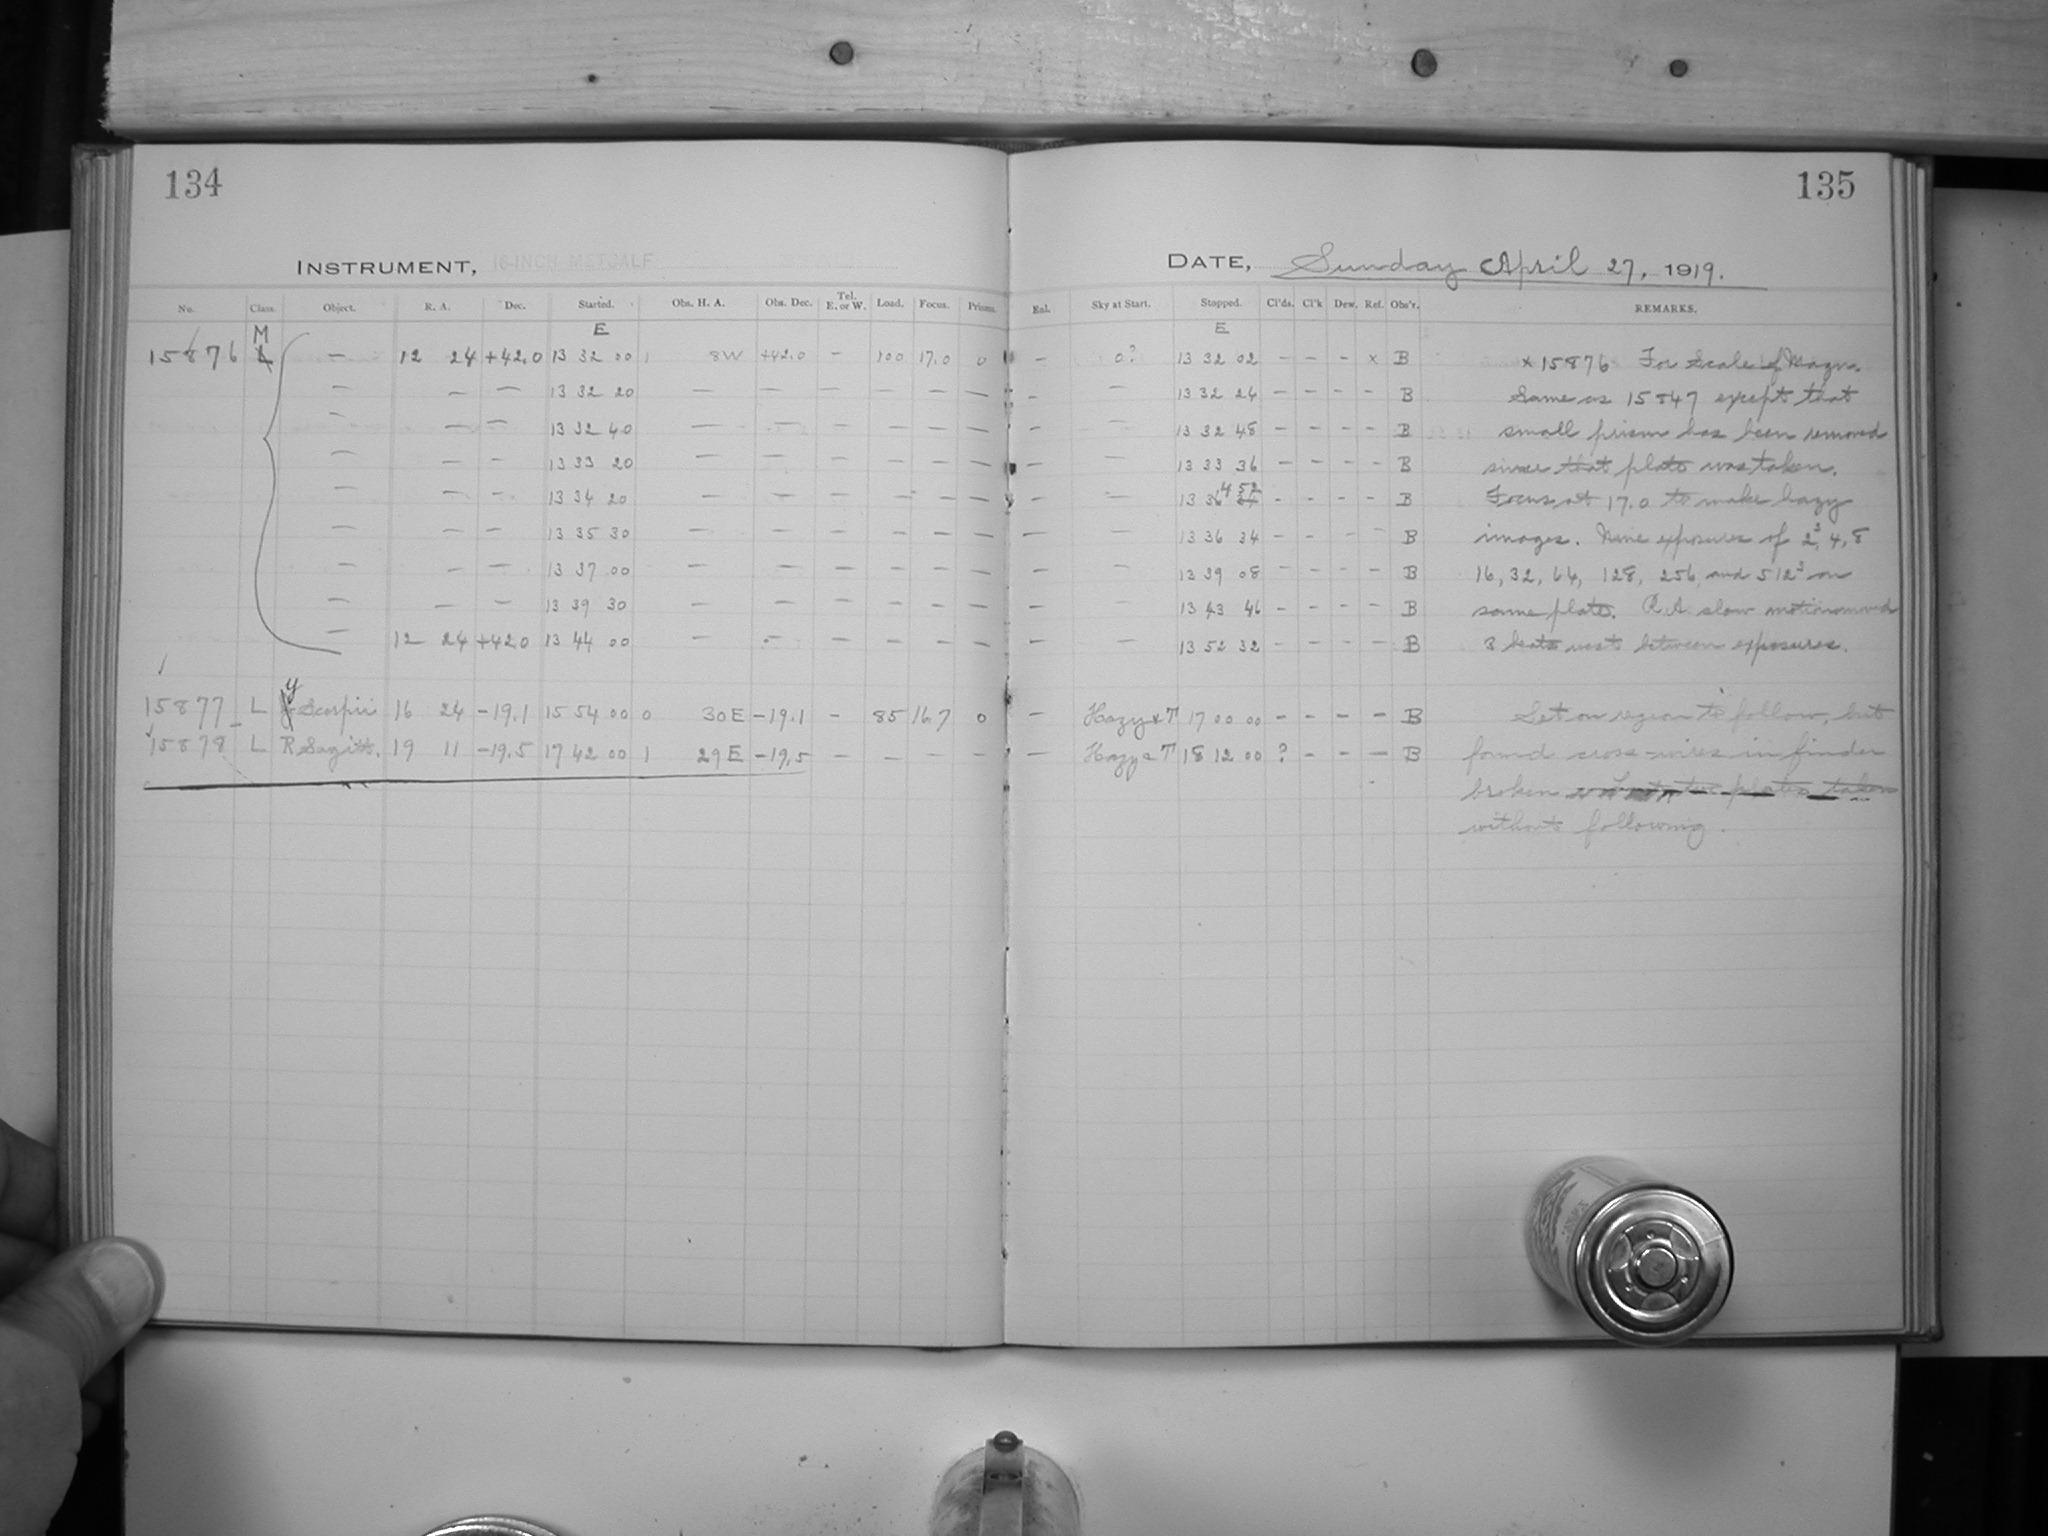 134
135
INSTRUMENT, 16-INCH METCALF
DATE, Sunday April 27, 1919.
No. Class. Object. R. A. Dec. Started. Obs. H. A. Obs. Dec. Tel. E. or W. Load. Focus. Prisms. Enl. Sky at Start. Stopped. Cl'ds. Cl'k Dew. Ref. Obs'r. REMARKS.
M E E
15876 L — 12 24 +42.0 13 32 00 1 8W +42.0 — 100 17.0 0 — 0? 13 32 02 — — — x B x 15876 For Scale of Magn.
— — — 13 32 20 — — — — — — — — 13 32 24 — — — — B Same as 15847 except that
— — — 13 32 40 — — — — — — — — 13 32 48 — — — — B small prism has been removed
— — — 13 33 20 — — — — — — — — 13 33 36 — — — — B since that plate was taken.
— — — 13 34 20 — — — — — — — — 13 34 52 — — — — B Focus at 17.0 to make hazy
— — — 13 35 30 — — — — — — — — 13 36 34 — — — — B images. Nine exposures of 2s, 4, 8
— — — 13 37 00 — — — — — — — — 13 39 08 — — — — B 16, 32, 64, 128, 256, and 512s on
— — — 13 39 30 — — — — — — — — 13 43 46 — — — — B same plate. R.A. slow motion moved
— 12 24 +42.0 13 44 00 — — — — — — — — 13 52 32 — — — — B 3 beats west between exposures.
15877 L y Scorpii 16 24 -19.1 15 54 00 0 30 E -19.1 — 85 16.7 0 — Hazy & T 17 00 00 — — — — B Set on region to follow, but
15878 L R Sagitt. 19 11 -19.5 17 42 00 1 29 E -19.5 — — — — — Hazy & T 18 12 00 ? — — — B found cross-wires in finder
broken plates taken
without following.